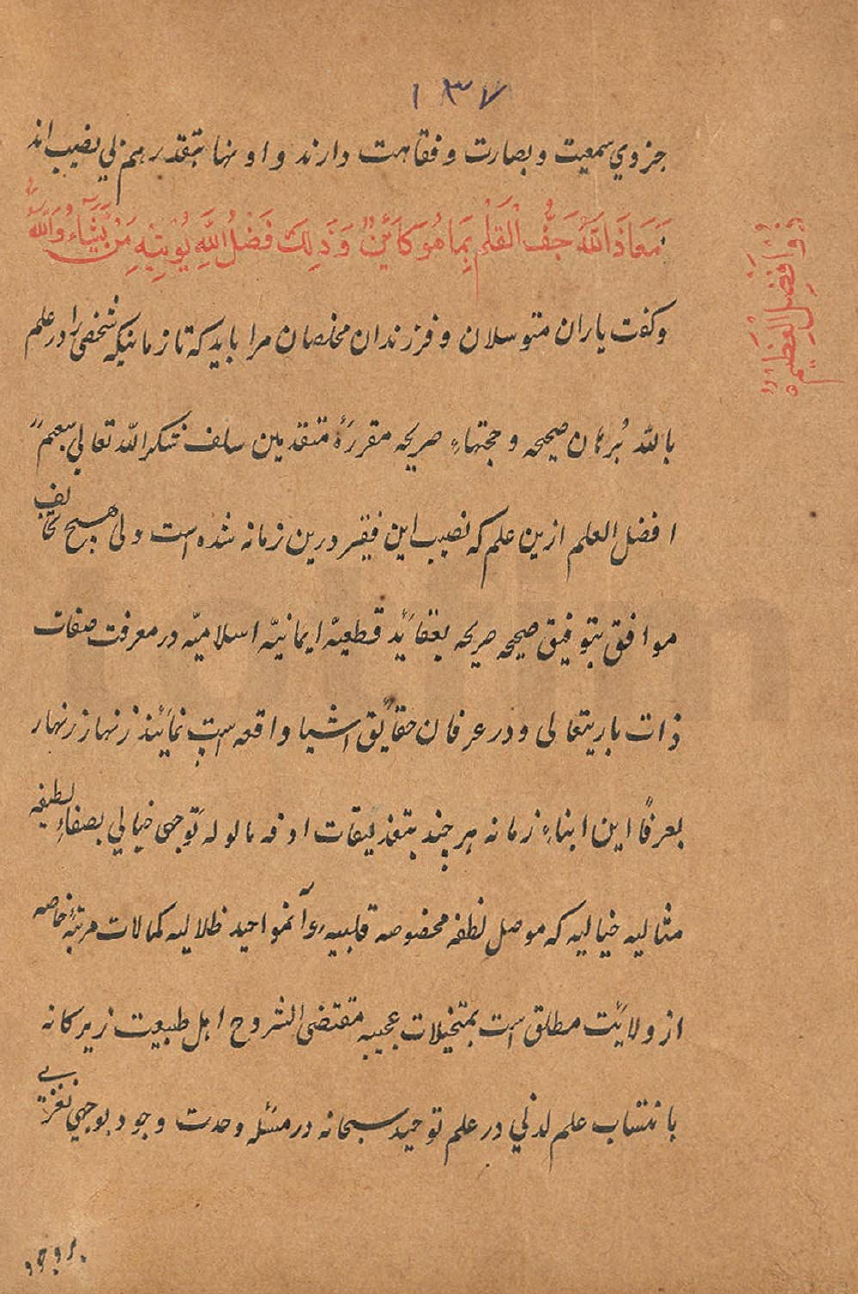 ١٣٧
جزوي سمعيت و بصارت و فقاهت دارند و اونها بتقدر هم بي نصيب اند
مَعَاذَ اللّٰهِ جَفَّ الْقَلَمُ بِمَا هُوَ كَائِنٌ وَ ذٰلِكَ فَضْلُ اللّٰهِ يُؤْتِيهِ مَنْ يَشَاءُ وَ اللّٰهُ
ذُو الفَضْلِ العَظِيمِ
و كفت ياران متوسلان و فرزندان مخلصان مرا بايد كه تا زمانيكه شخصي را در علم
باللّه بُرهان صحيحه و حجتهاء صريحه مقررهٔ متقدمين سلف شكر اللّه تعالي سعيهم
افضل العلم ازين علم كه نصيب اين فقير درين زمانه شده است ولي هيچ تخالف
موافق بتوفيق صحيحه صريحه بعقائد قطعيه ايمانيه اسلاميه در معرفت صفات
ذات باريتعالى و در عرفان حقايق اشيا واقعه است نمايند زنهار زنهار
بعرفا اين ابناء زمانه هر چند بتعذليقات اذفه مالوله توجهي خيالي بصفاء لطيفه
مثاليه خياليه كه موصل لطفه مخصوصه قلبيه و آنمواحيد ظلاليه كمالات مرتبهٔ خاصه
از ولايت مطلق است بمتخيلات عجيبه مقتضى الشروح اهل طبيعت زيركانه
بانتساب علم لدني در علم توحيد سبحانه در مسئله وحدت وجود بوجهي نغزتر